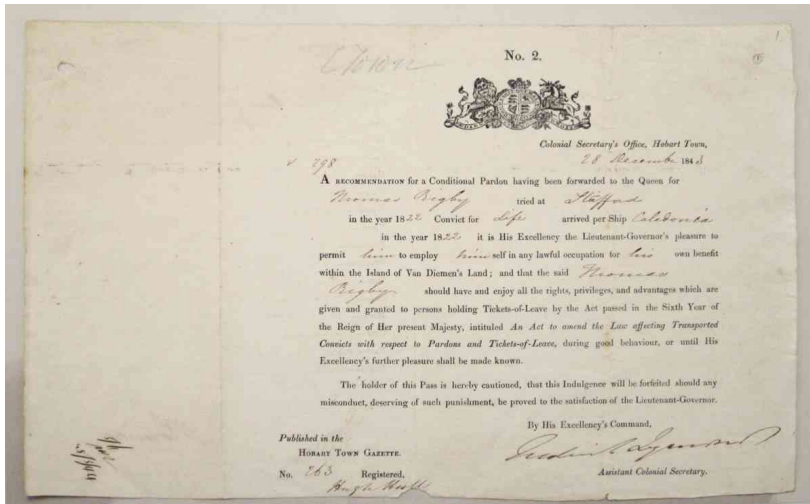 1.
No. 2.
Colonial Secretary's Office, Hobart Town,
28 December 1843
298
A RECOMMENDATION for a Conditional Pardon having been forwarded to the Queen for
Thomas Rigby tried at Stafford
in the year 1822 Convict for Life arrived per Ship Caledonia
in the year 1822 it is His Excellency the Lieutenant-Governor's pleasure to
permit him to employ him self in any lawful occupation for his own benefit
within the Island of Van Diemen's Land; and that the said Thomas
Rigby should have and enjoy all the rights, privileges, and advantages which are
given and granted to persons holding Tickets-of-Leave by the Act passed in the Sixth Year of
the Reign of Her present Majesty, intituled An Act to amend the Law affecting Transported
Convicts with respect to Pardons and Tickets-of-Leave, during good behaviour, or until His
Excellency's further pleasure shall be made known.
The holder of this Pass is hereby cautioned, that this Indulgence will be forfeited should any
misconduct, deserving of such punishment, be proved to the satisfaction of the Lieutenant-Governor.
By His Excellency's Command,
Assistant Colonial Secretary.
Published in the
HOBART TOWN GAZETTE.
No. 263 Registered,
Hugh